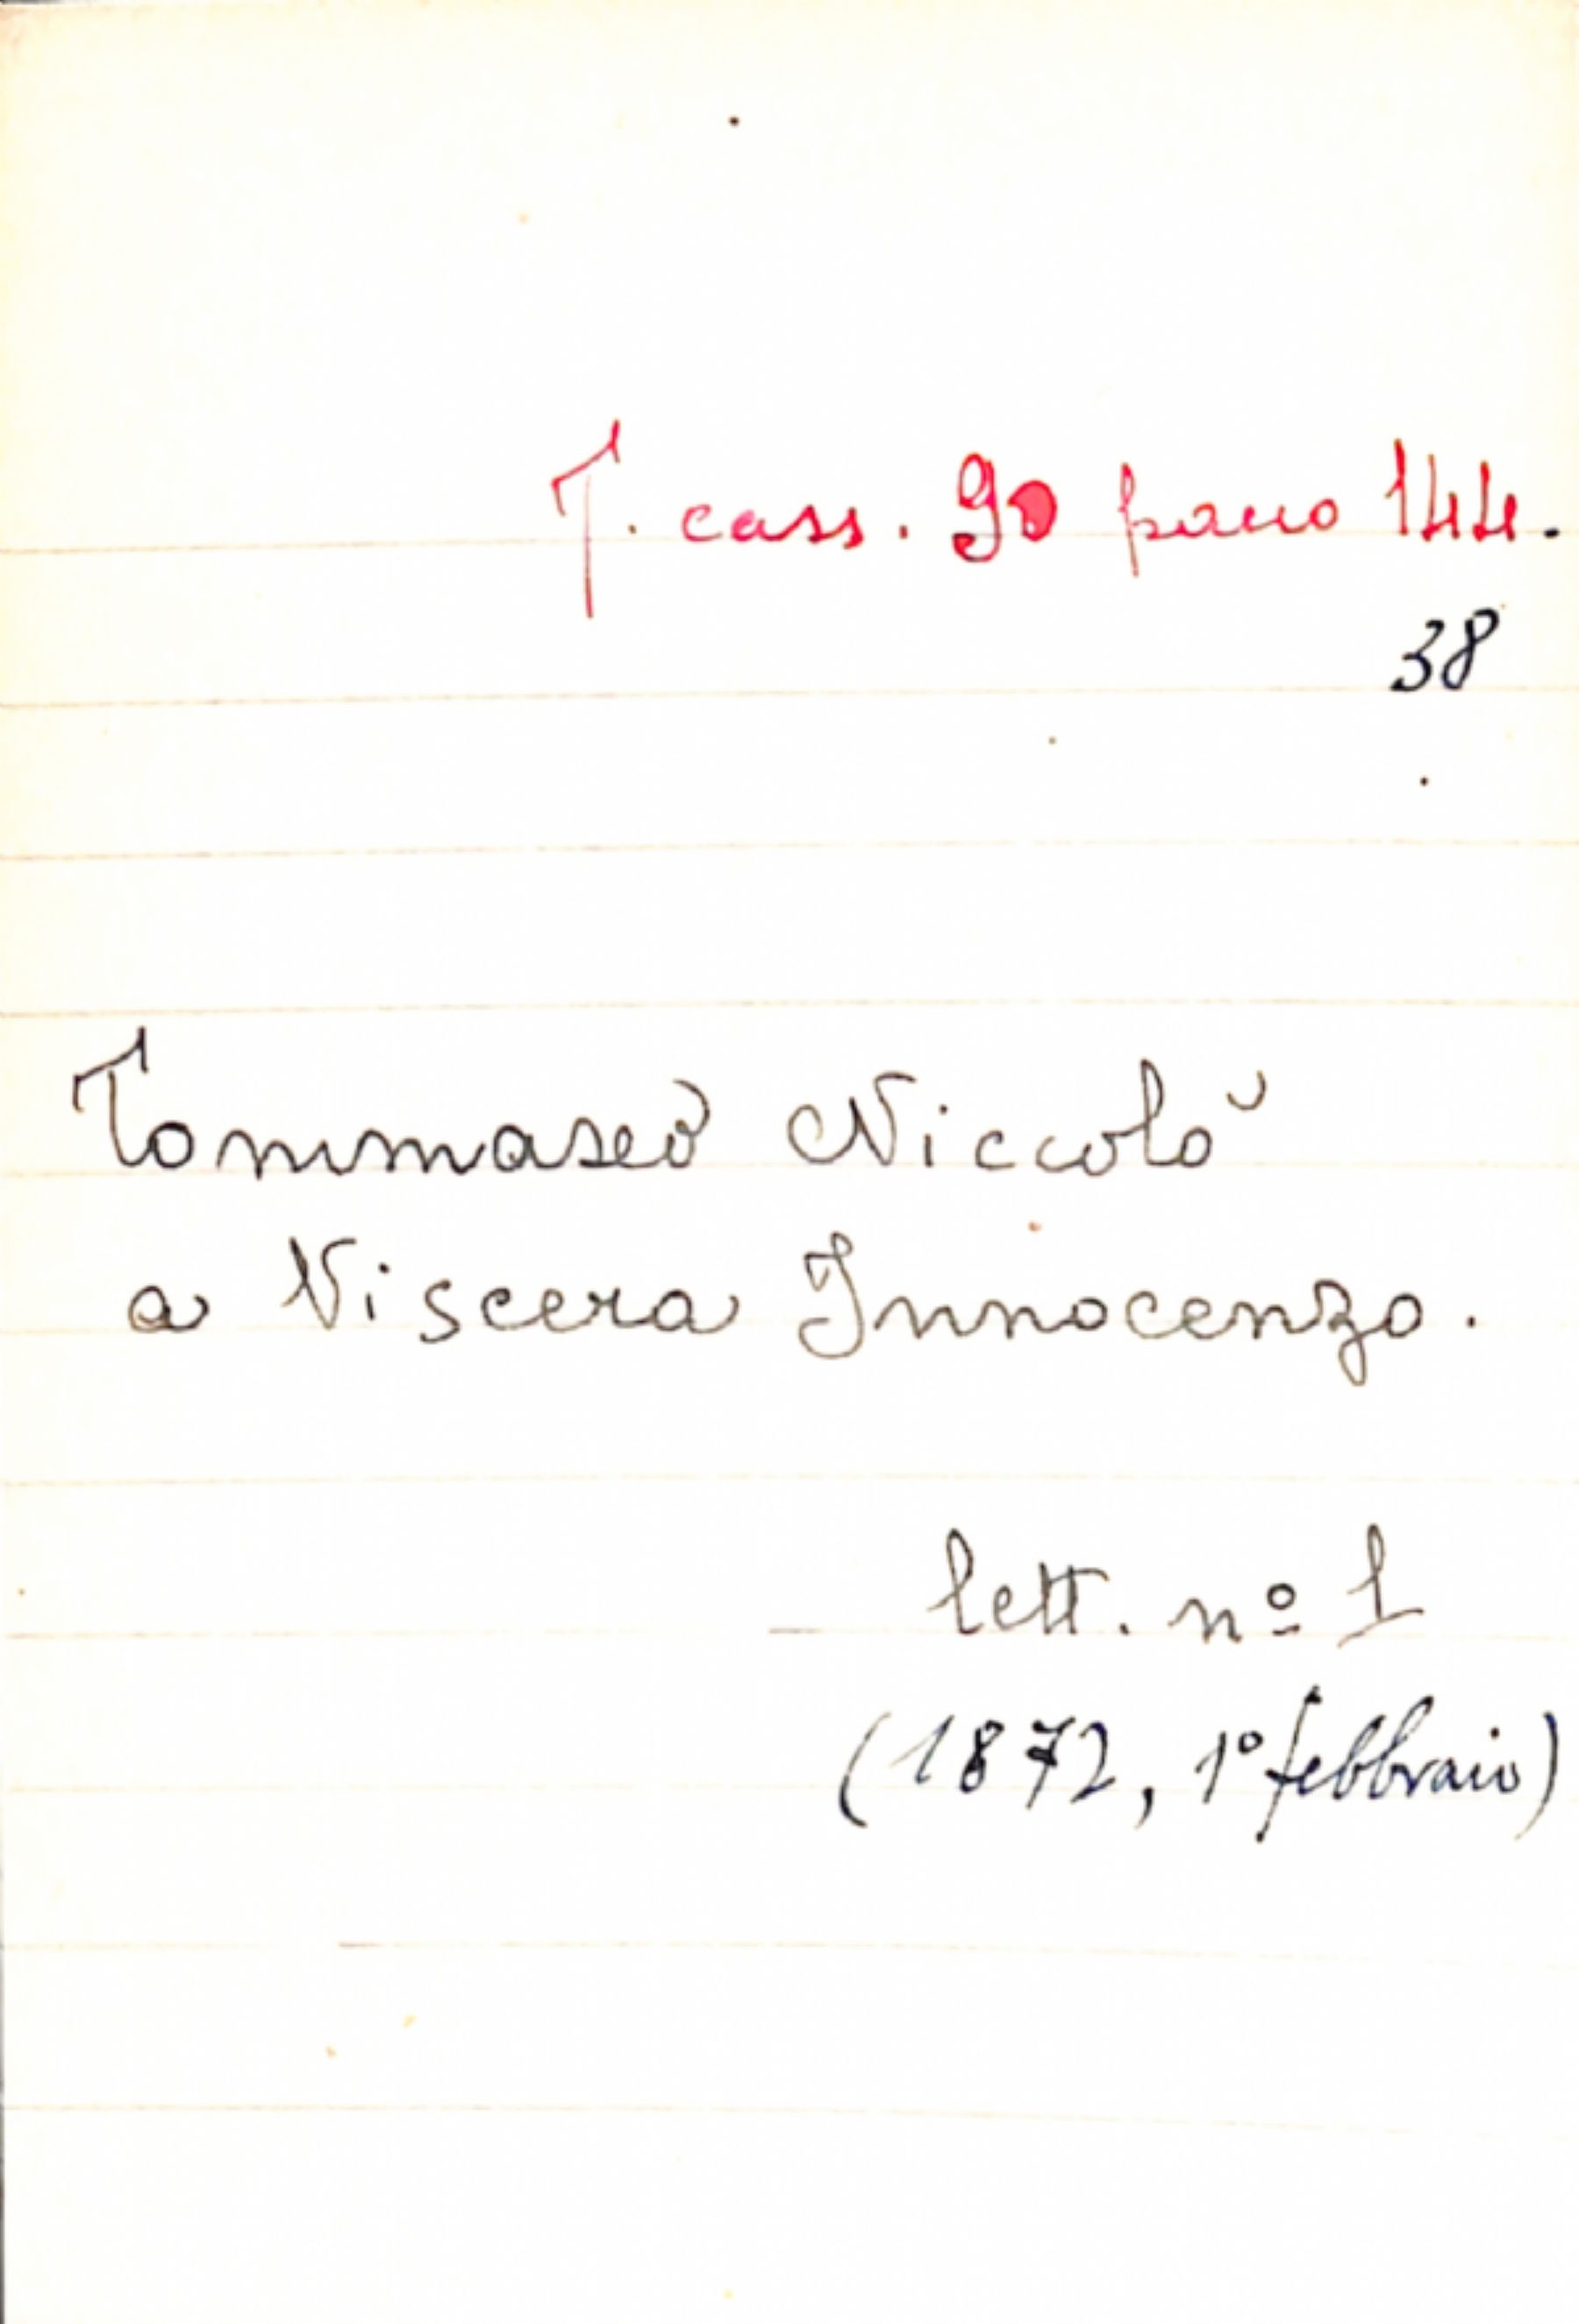 T. cass. 90 pacco 144.
38
Tommaseo Niccolò
a Viscera Innocenzo.
lett. nº 1
(1872, 1º febbraio)